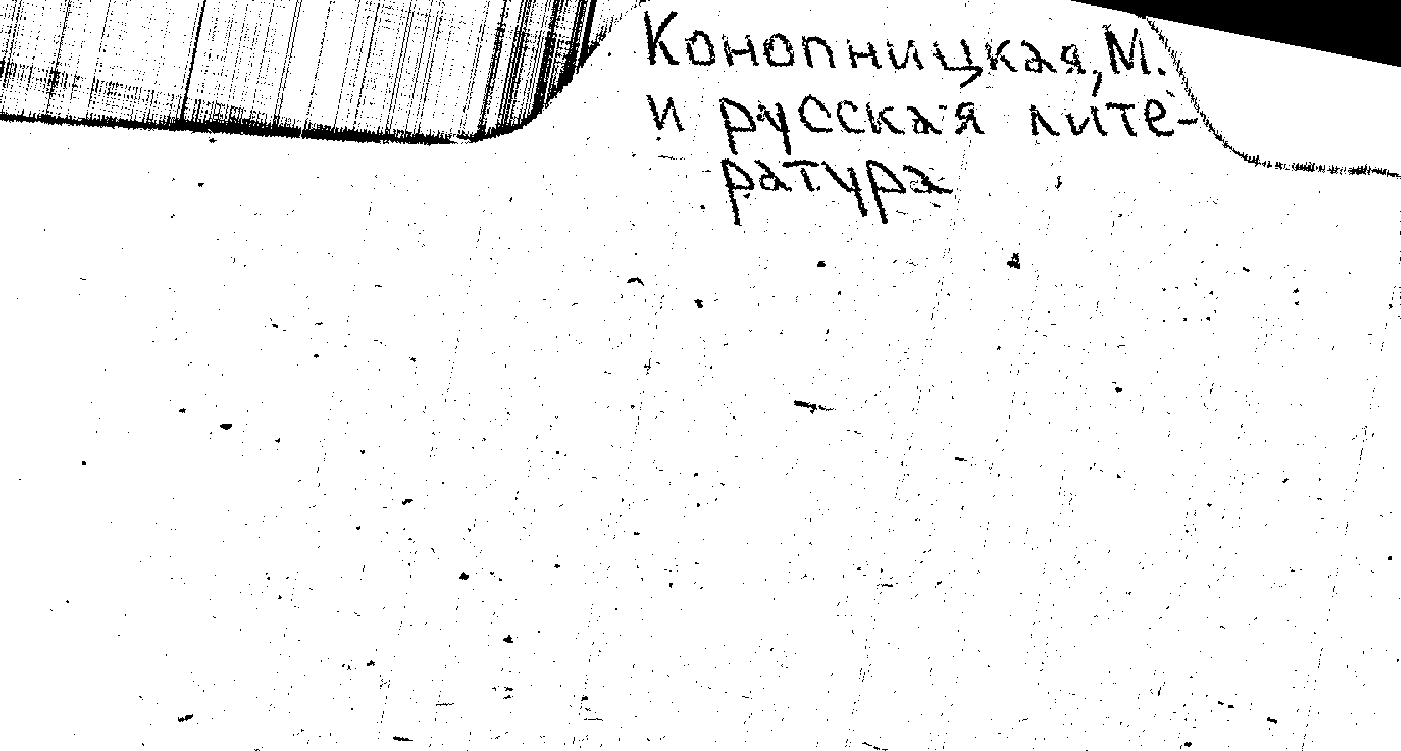 Конопницкая, М.
и русская лите-
ратура